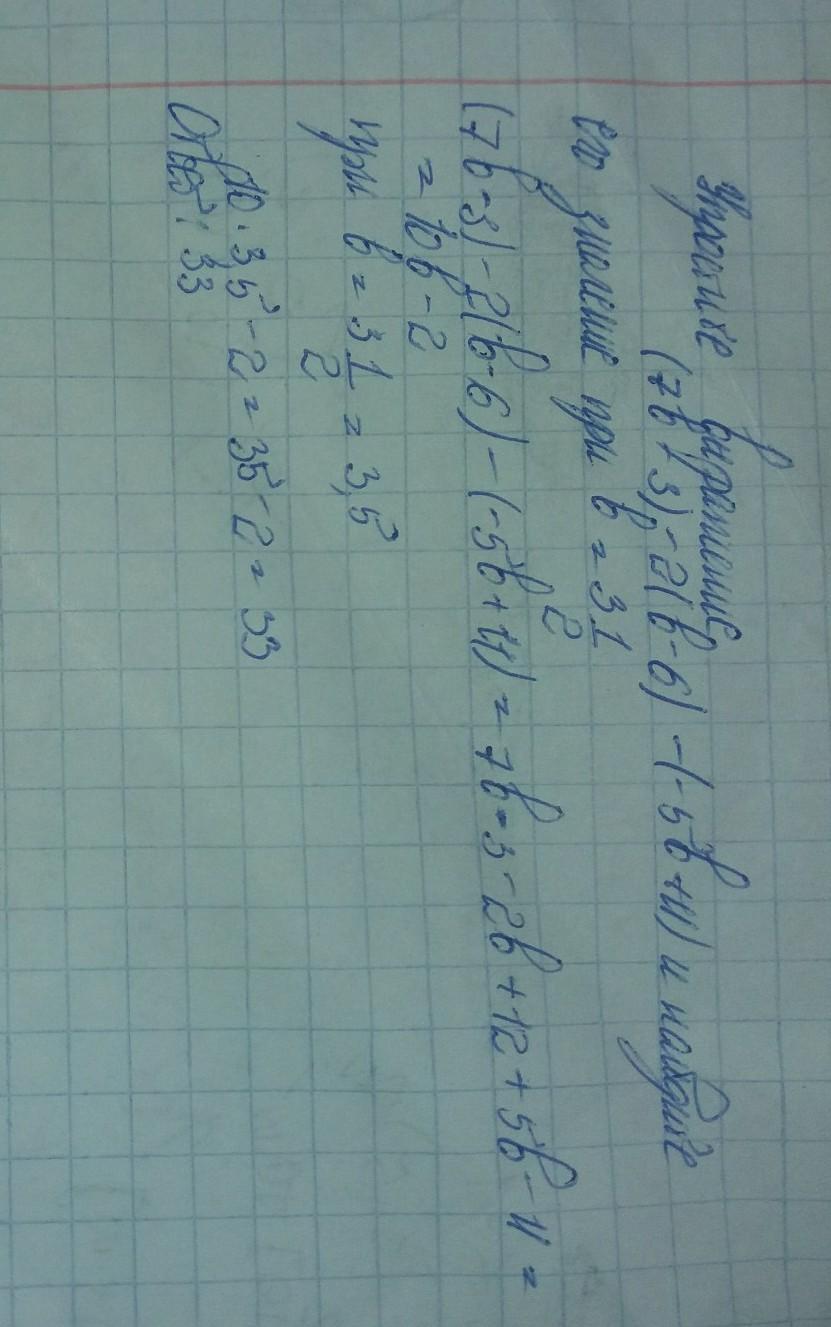 Упростите выражение
(7b-3)-2(b-6)-(-5b+11) и найдите
его значение при b = 3 1/2
(7b-3)-2(b-6)-(-5b+11) = 7b-3-2b+12+5b-11 =
= 10b-2
при b = 3 1/2 = 3,5
10·3,5-2 = 35-2 = 33
Ответ: 33